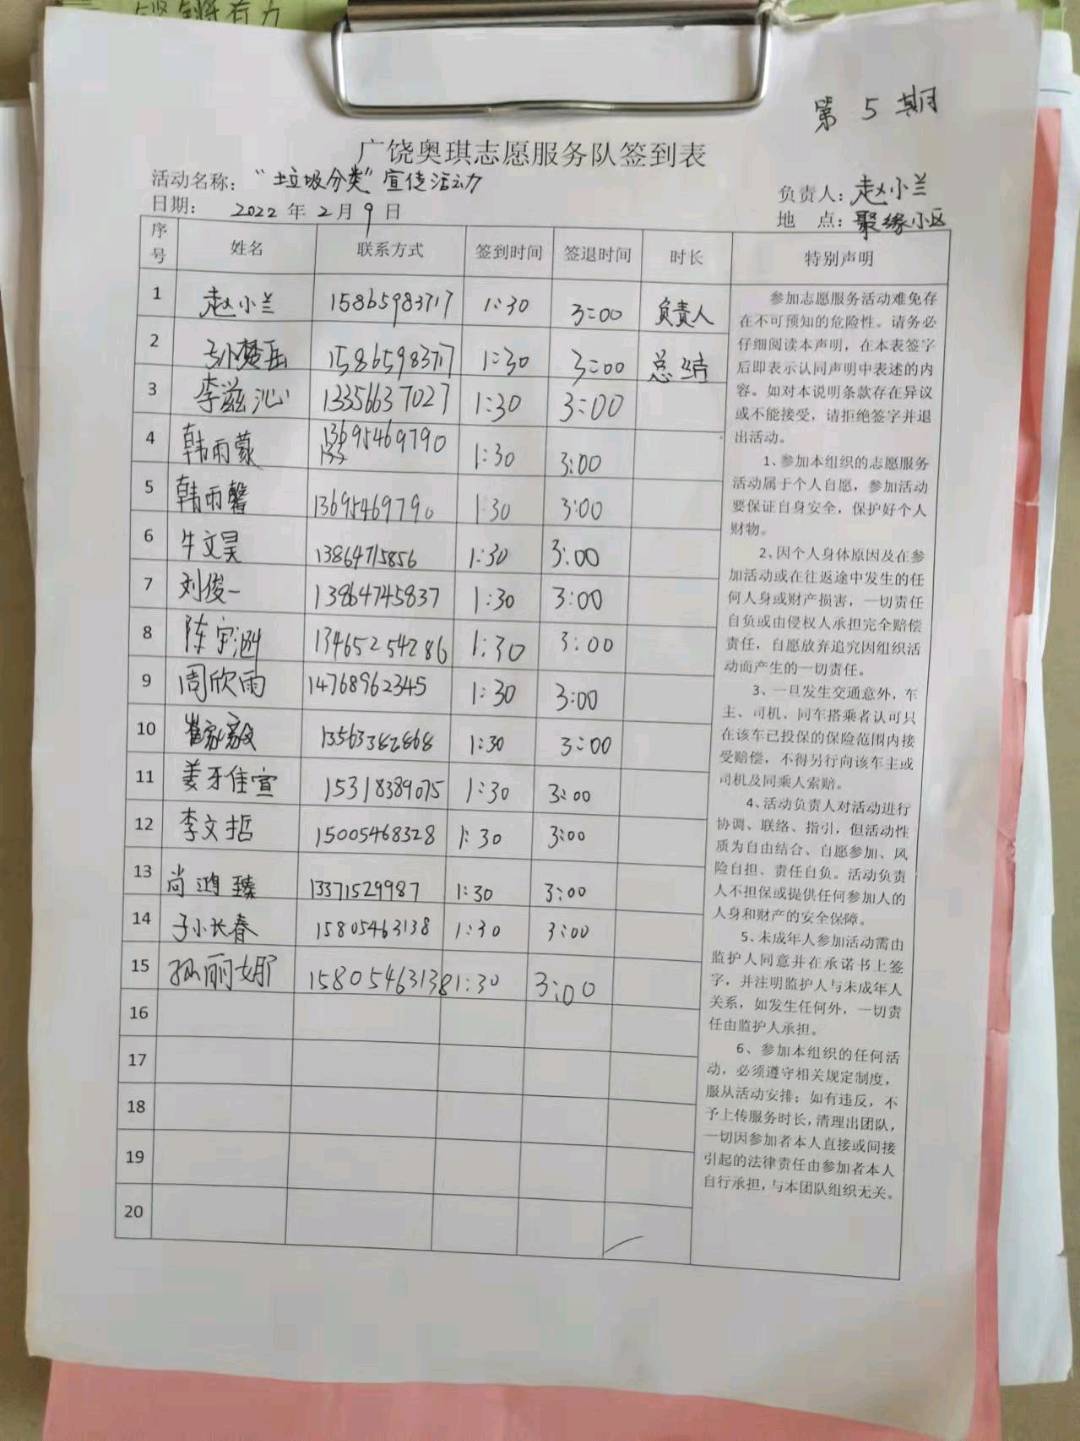 第 5 期
广饶奥琪志愿服务队签到表
活动名称：“垃圾分类”宣传活动
负责人：赵小兰
日期： 2022 年 2 月 9 日
地 点：聚缘小区
序号 姓名 联系方式 签到时间 签退时间 时长 特别声明
1 赵小兰 15865983717 1:30 3:00 负责人
2 15865983717 1:30 3:00 总结
3 李滋沁 13356637027 1:30 3:00
4 韩雨蒙 13695469790 1:30 3:00
5 韩雨馨 13695469790 1:30 3:00
6 牛文昊 13864715856 1:30 3:00
7 刘俊一 13864745837 1:30 3:00
8 陈宇涵 13465254286 1:30 3:00
9 周欣雨 14768962345 1:30 3:00
10 13563382868 1:30 3:00
11 姜牙佳宣 15318389075 1:30 3:00
12 李文哲 15005468328 1:30 3:00
13 尚鸿臻 13371529987 1:30 3:00
14 孙长春 15805463138 1:30 3:00
15 孙丽娜 15805463138 1:30 3:00
16
17
18
19
20
参加志愿服务活动难免存
在不可预知的危险性。请务必
仔细阅读本声明，在本表签字
后即表示认同声明中表述的内
容。如对本说明条款存在异议
或不能接受，请拒绝签字并退
出活动。
1、参加本组织的志愿服务
活动属于个人自愿，参加活动
要保证自身安全，保护好个人
财物。
2、因个人身体原因及在参
加活动或在往返途中发生的任
何人身或财产损害，一切责任
自负或由侵权人承担完全赔偿
责任，自愿放弃追究因组织活
动而产生的一切责任。
3、一旦发生交通意外，车
主、司机、同车搭乘者认可只
在该车已投保的保险范围内接
受赔偿，不得另行向该车主或
司机及同乘人索赔。
4、活动负责人对活动进行
协调、联络、指引，但活动性
质为自由结合、自愿参加、风
险自担、责任自负。活动负责
人不担保或提供任何参加人的
人身和财产的安全保障。
5、未成年人参加活动需由
监护人同意并在承诺书上签
字，并注明监护人与未成年人
关系，如发生任何外，一切责
任由监护人承担。
6、参加本组织的任何活
动，必须遵守相关规定制度，
服从活动安排；如有违反，不
予上传服务时长，清理出团队，
一切因参加者本人直接或间接
引起的法律责任由参加者本人
自行承担，与本团队组织无关。